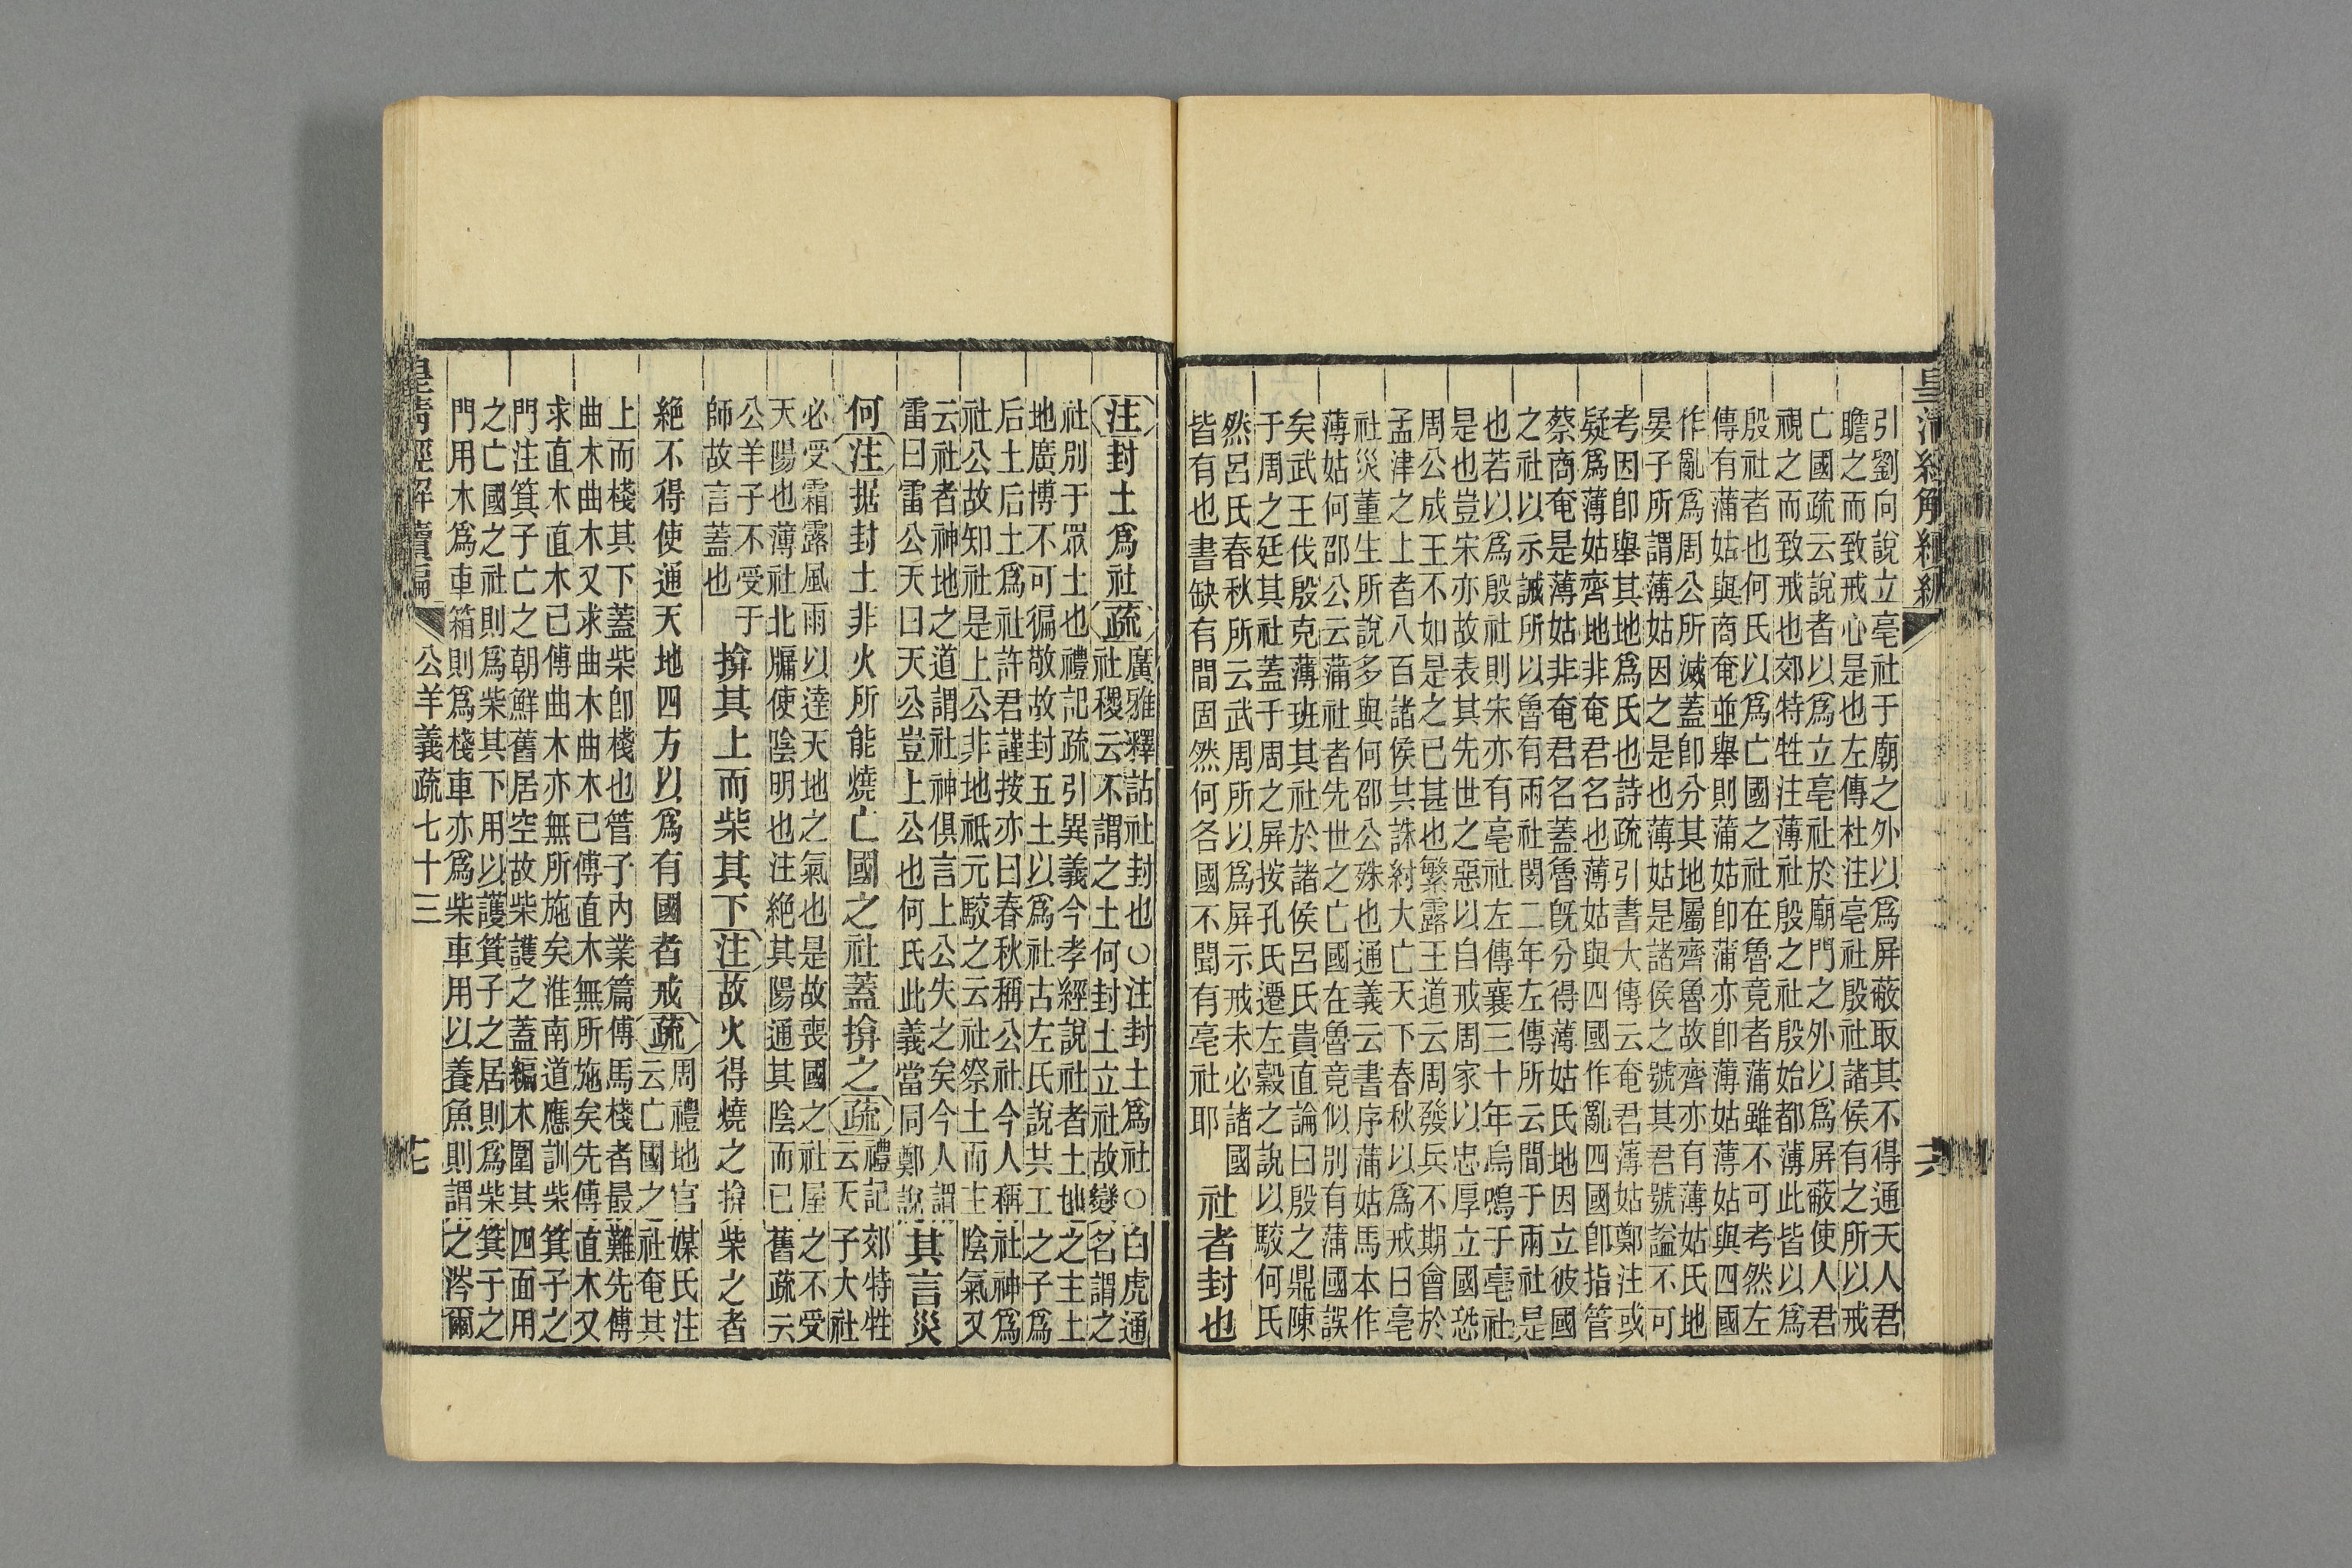 引劉向說立亳社于廟之外以爲屏蔽取其不得通天人君
瞻之而致戒心是也左傳杜注亳社殷社諸侯有之所以戒
亡國疏云說者以爲立亳社於廟門之外以爲屏蔽使人君
視之而致戒也郊特牲注薄社殷之社殷始都薄此皆以爲
殷社者也何氏以爲亡國之社在魯竟者蒲雖不可考然左
傳有蒲姑與商奄並舉則蒲姑卽蒲亦卽薄姑薄姑與四國
作亂爲周公所滅蓋卽分其地屬齊魯故齊亦有薄姑氏地
晏子所謂薄姑因之是也薄姑是諸侯之號其君號謚不可
考因卽舉其地爲氏也詩疏引書大傳云奄君薄姑鄭注或
疑爲薄姑齊地非奄君名也薄姑與四國作亂四國卽指管
蔡商奄是薄姑非奄君名蓋魯旣分得薄姑氏地因立彼國
之社以示誡所以魯有兩社閔二年左傳所云間于兩社是
也若以爲殷社則宋亦有亳社左傳襄三十年烏鳴于亳社
是也豈宋亦故表其先世之惡以自戒周家以忠厚立國恐
周公成王不如是之已甚也繁露王道云周發兵不期會於
孟津之上者八百諸侯共誅紂大亡天下春秋以爲戒曰亳
社災董生所說多與何邵公殊也通義云書序蒲姑馬本作
薄姑何邵公云蒲社者先世之亡國在魯竟似別有蒲國誤
矣武王伐殷克薄班其社於諸侯呂氏貴直論曰殷之鼎陳
于周之廷其社蓋于周之屏按孔氏遷左穀之說以駮何氏
然呂氏春秋所云武周所以爲屏示戒未必諸國
皆有也書缺有間固然何各國不聞有亳社耶
社者封也
注封土爲社疏
廣雅釋詁社封也○注封土爲社○白虎通
社稷云不謂之土何封土立社故變名謂之
社別于眾土也禮記疏引異義今孝經說社者土地之主土
地廣博不可徧敬故封五土以爲社古左氏說共工之子爲
后土后土爲社許君謹按亦曰春秋稱公社今人稱社神爲
社公故知社是上公非地祗元駮之云社祭土而主陰氣又
云社者神地之道謂社神俱言上公失之矣今人謂
雷曰雷公天曰天公豈上公也何氏此義當同鄭說
其言災
何注据封土非火所能燒亡國之社蓋揜之疏
禮記郊特牲
云天子大社
必受霜露風雨以達天地之氣也是故喪國之社屋之不受
天陽也薄社北牖使陰明也注絕其陽通其陰而已舊疏云
公羊子不受于
師故言蓋也
揜其上而柴其下注故火得燒之揜柴之者
絕不得使通天地四方以爲有國者戒疏
周禮地官媒氏注
云亡國之社奄其
上而棧其下蓋柴卽棧也管子內業篇傅馬棧者最難先傅
曲木曲木又求曲木曲木已傅直木無所施矣先傅直木又
求直木直木已傅曲木亦無所施矣淮南道應訓柴箕子之
門注箕子亡之朝鮮舊居空故柴護之蓋編木圍其四面用
之亡國之社則爲柴其下用以護箕子之居則爲柴箕于之
門用木爲車箱則爲棧車亦爲柴車用以養魚則謂之涔爾
皇清經解續編 公羊義疏七十三